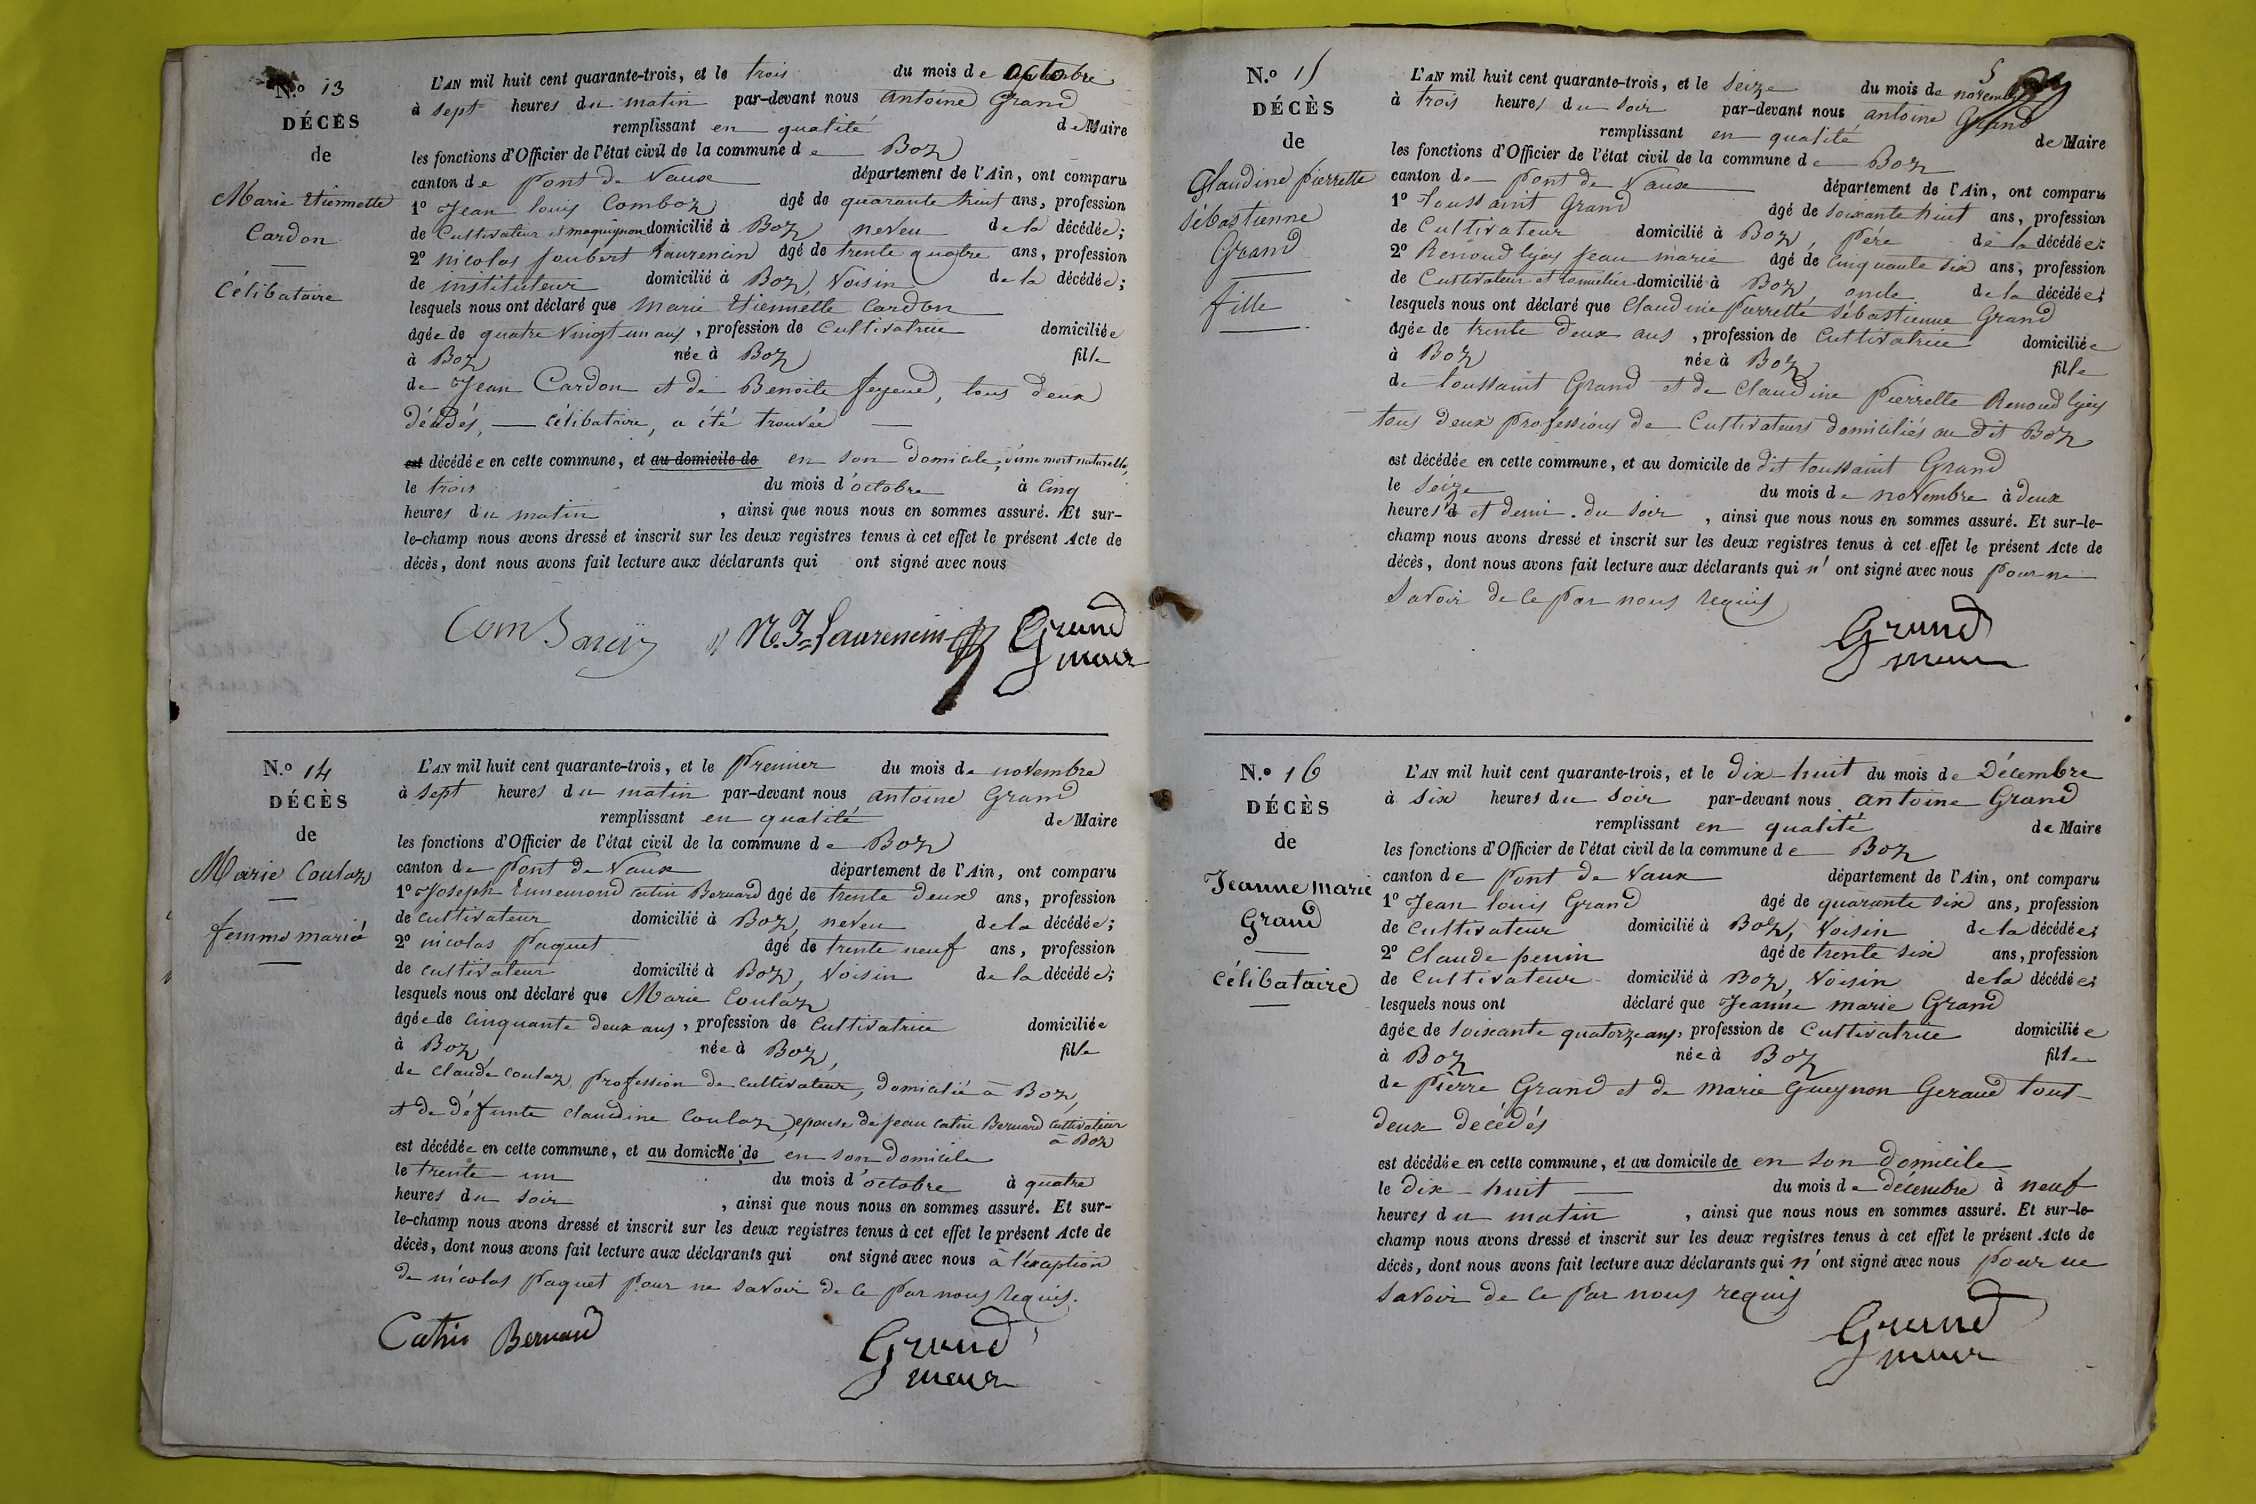 N.º 13
DÉCÈS
de
Marie Etiennette
Cardon
Célibataire
L'AN mil huit cent quarante-trois, et le trois du mois de octobre
à sept heures du matin par-devant nous antoine Grand
remplissant en qualité de Maire
les fonctions d'Officier de l'état civil de la commune de Boz
canton de Pont de Vaux département de l'Ain, ont comparu
1º Jean louis Comboz âgé de quarante huit ans, profession
de Cultivateur et maquignon domicilié à Boz neveu de la décédée;
2º nicolas Joubert Laurencin âgé de trente quatre ans, profession
de instituteur domicilié à Boz, Voisin de la décédée;
lesquels nous ont déclaré que Marie Etiennette Cardon
âgée de quatre Vingt un ans, profession de Cultivatrice domiciliée
à Boz née à Boz fille
de Jean Cardon et de Benoite feyeud, tous deux
décédés, célibataire, a été trouvée
est décédée en cette commune, et au domicile de en son domicile, d'une mort naturelle,
le trois du mois d'octobre à Cinq
heures du matin, ainsi que nous nous en sommes assuré. Et sur-
le-champ nous avons dressé et inscrit sur les deux registres tenus à cet effet le présent Acte de
décès, dont nous avons fait lecture aux déclarants qui ont signé avec nous
N. J. Laurencin Grand
maire
N.º 14
DÉCÈS
de
Marie Coulaz
femme marié
L'AN mil huit cent quarante-trois, et le Premier du mois de novembre
à sept heures du matin par-devant nous antoine Grand
remplissant en qualité de Maire
les fonctions d'Officier de l'état civil de la commune de Boz
canton de Pont de Vaux département de l'Ain, ont comparu
1º Joseph Ennemond Catin Bernard âgé de trente deux ans, profession
de cultivateur domicilié à Boz, neveu de la décédée;
2º nicolas Paquet âgé de trente neuf ans, profession
de cultivateur domicilié à Boz, Voisin de la décédée;
lesquels nous ont déclaré que Marie Coulaz
âgée de Cinquante deux ans, profession de Cultivatrice domiciliée
à Boz née à Boz, fille
de Claude Coulaz, profession de cultivateur, domicilié à Boz,
et de défunte Claudine Coulaz, epouse de Jean Catin Bernard Cultivateur
à Boz
est décédée en cette commune, et au domicile de en son domicile
le trente-un du mois d'octobre à quatre
heures du soir, ainsi que nous nous en sommes assuré. Et sur-
le-champ nous avons dressé et inscrit sur les deux registres tenus à cet effet le présent Acte de
décès, dont nous avons fait lecture aux déclarants qui ont signé avec nous à l'exception
de nicolas Paquet pour ne savoir de ce par nous requis.
Catin Bernard Grand
maire
5
N.º 15
DÉCÈS
de
Claudine pierrette
Sébastienne
Grand
fille
L'AN mil huit cent quarante-trois, et le Seize du mois de novembre
à trois heures du soir par-devant nous antoine Grand
remplissant en qualité de Maire
les fonctions d'Officier de l'état civil de la commune de Boz
canton de Pont de Vaux département de l'Ain, ont comparu
1º toussaint Grand âgé de Soixante huit ans, profession
de Cultivateur domicilié à Boz, père de la décédée;
2º Renoud lyes Jean marie âgé de Cinquante Six ans, profession
de Cultivateur et tonnelier domicilié à Boz oncle de la décédée;
lesquels nous ont déclaré que Claudine Pierrette Sébastienne Grand
âgée de trente deux ans, profession de Cultivatrice domiciliée
à Boz née à Boz fille
de toussaint Grand et de Claudine Pierrette Renoud lyes
tous deux professions de Cultivateurs domiciliés au dit Boz
est décédée en cette commune, et au domicile de dit toussaint Grand
le Seize du mois de novembre à deux
heures et demi du soir, ainsi que nous nous en sommes assuré. Et sur-le-
champ nous avons dressé et inscrit sur les deux registres tenus à cet effet le présent Acte de
décès, dont nous avons fait lecture aux déclarants qui n'ont signé avec nous Pour ne
Savoir de ce par nous requis
Grand
maire
N.º 16
DÉCÈS
de
Jeanne marie
Grand
Célibataire
L'AN mil huit cent quarante-trois, et le dix-huit du mois de Décembre
à Six heures du soir par-devant nous antoine Grand
remplissant en qualité de Maire
les fonctions d'Officier de l'état civil de la commune de Boz
canton de Pont de Vaux département de l'Ain, ont comparu
1º Jean louis Grand âgé de quarante six ans, profession
de Cultivateur domicilié à Boz, Voisin de la décédée;
2º Claude perrin âgé de trente six ans, profession
de Cultivateur domicilié à Boz, Voisin de la décédée;
lesquels nous ont déclaré que Jeanne marie Grand
âgée de Soixante quatorze ans, profession de Cultivatrice domiciliée
à Boz née à Boz fille
de Pierre Grand et de Marie Gueynon Geraud tout
deux décédés
est décédée en cette commune, et au domicile de en son domicile
le dix-huit du mois de décembre à neuf
heures du matin, ainsi que nous nous en sommes assuré. Et sur-le-
champ nous avons dressé et inscrit sur les deux registres tenus à cet effet le présent Acte de
décès, dont nous avons fait lecture aux déclarants qui n'ont signé avec nous Pour ne
Savoir de ce par nous requis
Grand
maire